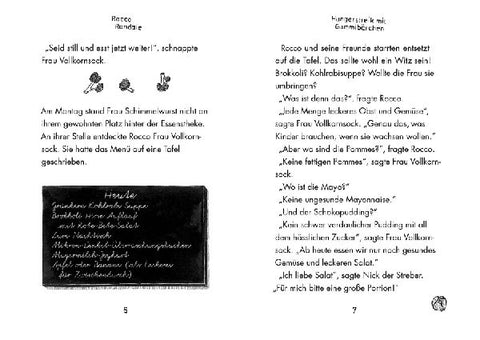 Rocco
Randale
„Seid still und esst jetzt weiter!“, schnappte
Frau Vollkornsock.
Am Montag stand Frau Schimmelwurst nicht an
ihrem gewohnten Platz hinter der Essenstheke.
An ihrer Stelle entdeckte Rocco Frau Vollkorn-
sock. Sie hatte das Menü auf eine Tafel
geschrieben.
Heute
Suppe
Brokkoli Auflauf
mit Rote-Bete-Salat
Zum Nachtisch
Apfel oder Banane (als Leckerei
für Zwischendurch)
5
Hungerstreik mit
Gummibärchen
Rocco und seine Freunde starrten entsetzt
auf die Tafel. Das sollte wohl ein Witz sein!
Brokkoli? Kohlrabisuppe? Wollte die Frau sie
umbringen?
„Was ist denn das?“, fragte Rocco.
„Jede Menge leckeres Obst und Gemüse“,
sagte Frau Vollkornsock. „Genau das, was
Kinder brauchen, wenn sie wachsen wollen.“
„Aber wo sind die Pommes?“, fragte Rocco.
„Keine fettigen Pommes“, sagte Frau Vollkorn-
sock.
„Wo ist die Mayo?“
„Keine ungesunde Mayonnaise.“
„Und der Schokopudding?“
„Kein schwer verdaulicher Pudding mit all
dem hässlichen Zucker“, sagte Frau Vollkorn-
sock. „Ab heute essen wir nur noch gesundes
Gemüse und leckeren Salat.“
„Ich liebe Salat“, sagte Nick der Streber.
„Für mich bitte eine große Portion!“
7